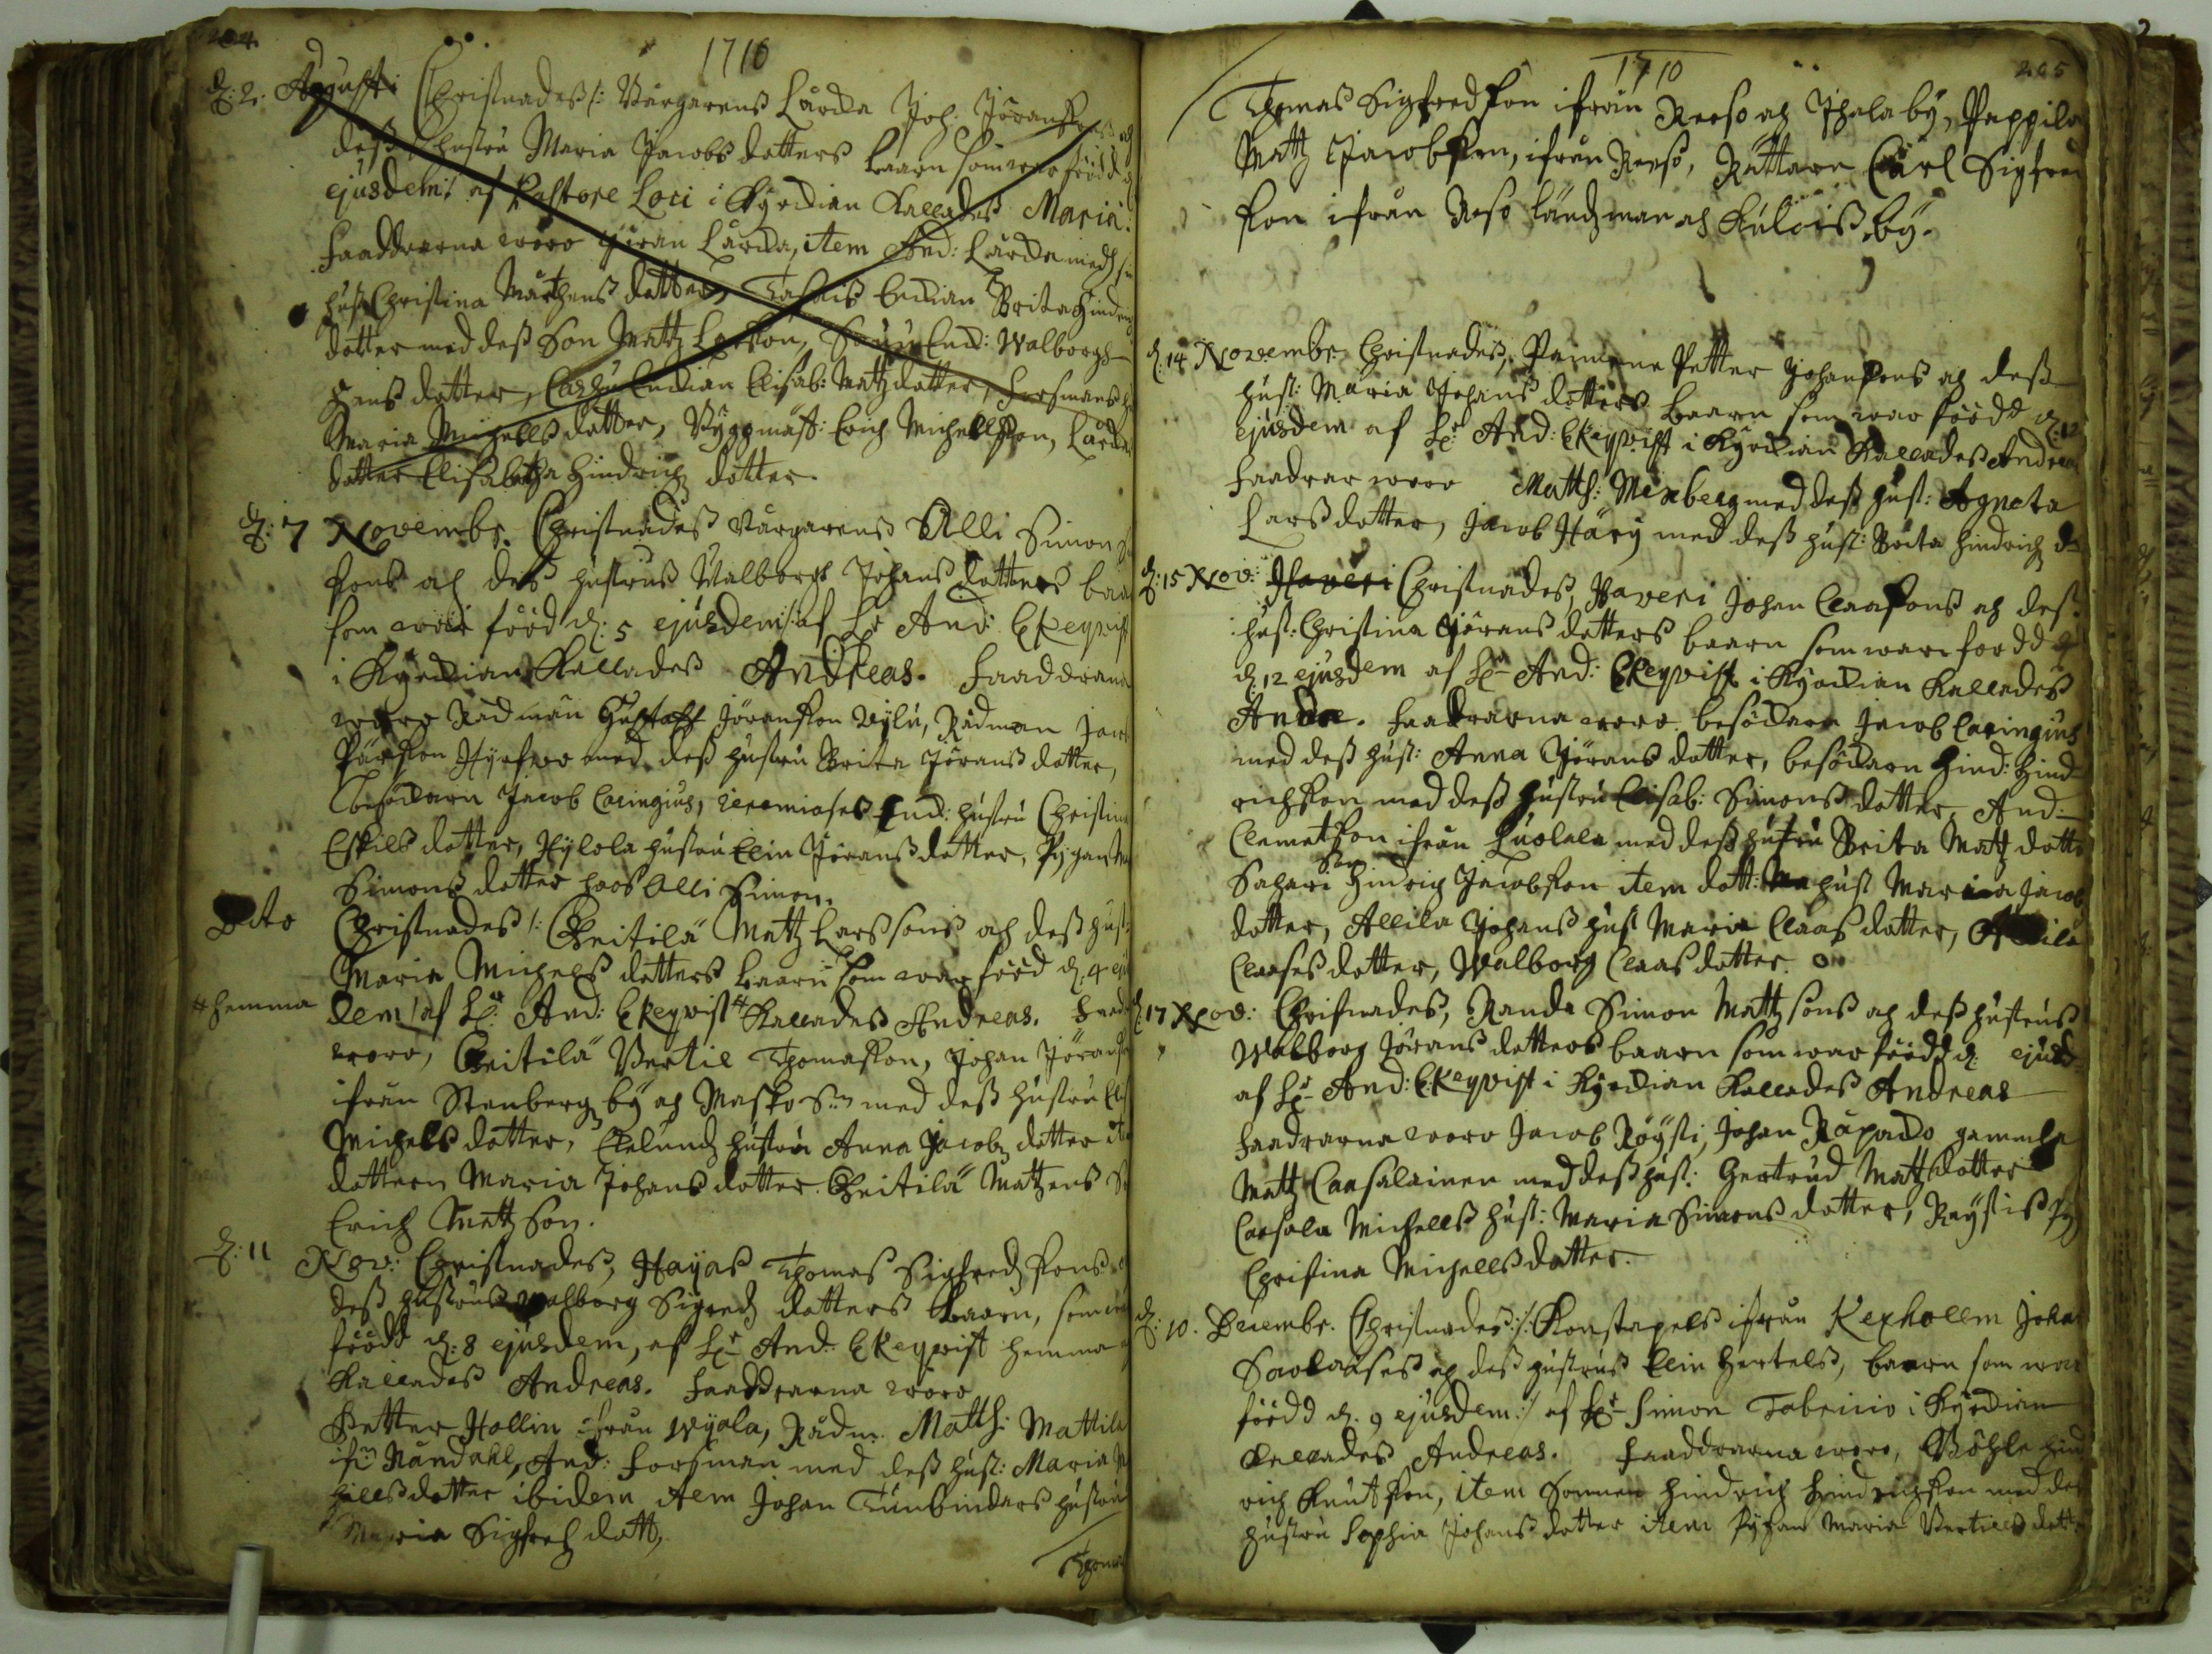 204
1710
d: 2: Augusti Christnades /: Wårgarens Lårda Joh: Jöransons och
deß hustru Maria Jacobs dotters baarn som war född
ejusdem :/ af Pastore Loci i Kyrckian Kallades Maria.
Faaddrarna woro Jöran Lårda, item And: Lårda med sin
hust: Christina Mårthens dotter, Enckian Brita Hindrichs
dotter med deß Son Matz Larsson, Enck: Walborgh
Hans dotter, Enckian Elisab: Matz dotter, Forsmans h:
Maria Michells dotter, Byggmäst: Erich Michellsson, Lårda
dotter Elisabetha Hindrich dotter.
d: 7 Novembr. Christnades Wårgarens Alli Simon
sons och des hustrus Walborgh Johans dotters baarn
som war född d: 5 ejusdem :/ af Hr And: Ekeqvist
i Kyrckian Kallades Andreas. Faaddrarna
woro Rådman Gustaff Jöransson Wylu, Rådman Jacob
Pärsson Hyrfwo med deß hustru Brita Jörans dotter,
besökarn Jacob Caringius, Jeremiases Enck: hustru Christina
Eskils dotter, Kylola hustru Elin Jörans dotter, Pygan M
Simons dotter hoos Alli Simon.
Dito Christnades /: Cheitilä Matz Larssons och deß hust:
Maria Michels dotters baarn som war född d. 4 ejus
dem :/ af Hr: And: Ekeqvist # Kallades Andreas. Faad
# hemma
woro, Cheitilä Bertil Thomasson, Johan Jöransson
ifrån Stenberg by och Masko Sn med deß hustru Elis
Michels dotter, Eklundz hustru Anna Jacobz dotter item
dottern Maria Johans dotter. Cheitilä Matzens Son
Erich Matzson.
d: 11 Nov: Christnades, Hayas Thomas Sigfredsons och
deß hustrus Walborg Sigfredz dotters baarn, som war
född d: 8 ejusdem, af Hr And: Ekeqvist hemma
Kallades Andreas. Faaddrarna woro
Petter Hollin ifrån Wyala, Rådm. Matth: Mattila
ifrn Råndahl, And: Forsman med deß hust: Maria Mi
hells dotter ibidem item Johan Tunbinders hustru
Maria Sigfredz dott,
Thomas
1710
205
Thomas Sigfredson ifrån Reeso och Ihalaby, Pappila
Matz Jacobsson, ifrån Reeso, Rättarn Carl Sigfred
son ifrån Reso ländzman och Kuloisby.
d: 14 Novembr: Christnades, Petter Johansons och deß
hust: Maria Johans dotters baarn som war född d: 12
ejusdem af Hr: And: Ekeqvist i Kyrckian Kallades Andreas
Faadrar woro Matth: Mexberg med deß hust: Agneta
Larsdotter, Jacob Häry med deß hust: Brita Hindrich d
d: 15 Nov: Haveri Christnades, Haveri Johan Claasons och des
hust: Christina Jörans dotters baarn som war född
d: 12 ejusdem af Hr And: Ekeqvist i Kyrckian Kallades
Andre. Faadrarna woro besökarn Jacob Caringius
med deß hust: Anna Jörans dotter, besökarn Hind: Hind
richsson med deß hustru Elisab: Simons dotter, And:
Clemetson ifrån Luolala med deß hustru Brita Matz dotter
Sahari Son Hindrich Jacobsson item dott: hust Maria Jacob
dotter, Allila Johans hust Maria Claas dotter, Allila
Clases dotter, Walborg Claas dotter.
d: 17 Nov: Christnades, Randa Simon Mattzsons och deß hustrus
Walborg Jörans dotters baarn som war född d: ejusd
af Hr And: Ekeqvist i Kyrckian Kallades Andreas
Faadrarna woro Jacob Röysti, Johan Räpado gamula
Matz Caasalainen med deß hust: Gertrud Matzdotter
Caasala Michells hust: Maria Simons dotter, Röystis Pyg
Christina Michellsdotter.
d: 10. Decembr. Christnades :/: Konstapels ifrån Kexhollm Johan
Savolaises och deß hustrus Elin Hertels, baarn som war
född d. 9 ejusdem :/ af Hr Simon Tabricio i Kyrckian
Kallades Andreas. Faaddrarna woro, Böhle Hind
rich Knutson, item Sonnen Hindrich Hindrichsson med deß
hustru Sophia Johans dotter item Pygan Maria Bertils dotter